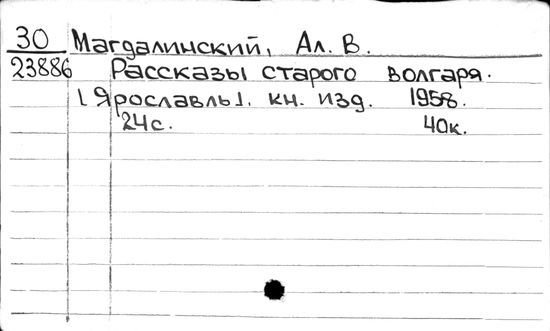 30 Магдалинский, Ал. В.
23886 Рассказы старого волгаря.
[Ярославль]. кн. изд. 1958.
24с. 40к.